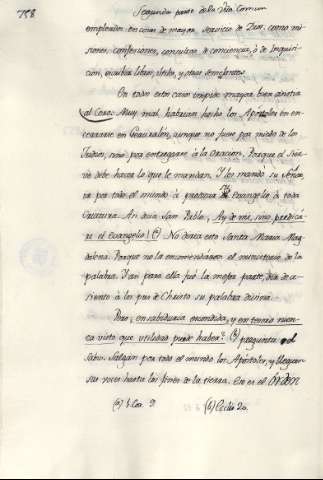 758
Segunda parte de la Vida Comun
empleados en cosas de mayor servicio de Dios, como mi-
siones, confesiones, consultas de conciencia, ò de Inquisi-
cion, escribir libros utiles, y otras semejantes.
En todo esto como impide mayor bien asistir
al Coro. Muy mal habrian hecho los Apóstoles en en-
cerrarse en Jerusalen, aunque no fuese por miedo de los
Judios, sino por entregarse à la oracion. Porque el Sier-
vo debe hacer lo que le mandan. Y los mando su Señor
ir por todo el mundo à predicar el Evangelio à toda
criatura. Asi decia San Pablo, Ay de mi, sino predicá-
re el evangelio! (a) No decia esto Santa Maria Mag-
dalena. Porque no la encomendaron el ministerio de la
palabra. Y asi para ella fué la mejor parte, oir de a-
siento à los pies de Christo su palabra divina.
Pero, en sabiduria escondida, y en tesoro nun-
ca visto que utilidad puede haber? (b) pregunta el
Sabio. Salgan por todo el mundo los Apóstoles, y lleguen
sus voces hasta los fines de la tierra. Ese es el orden
(a) 1. Cor. 9. (b) Eccli. 20.